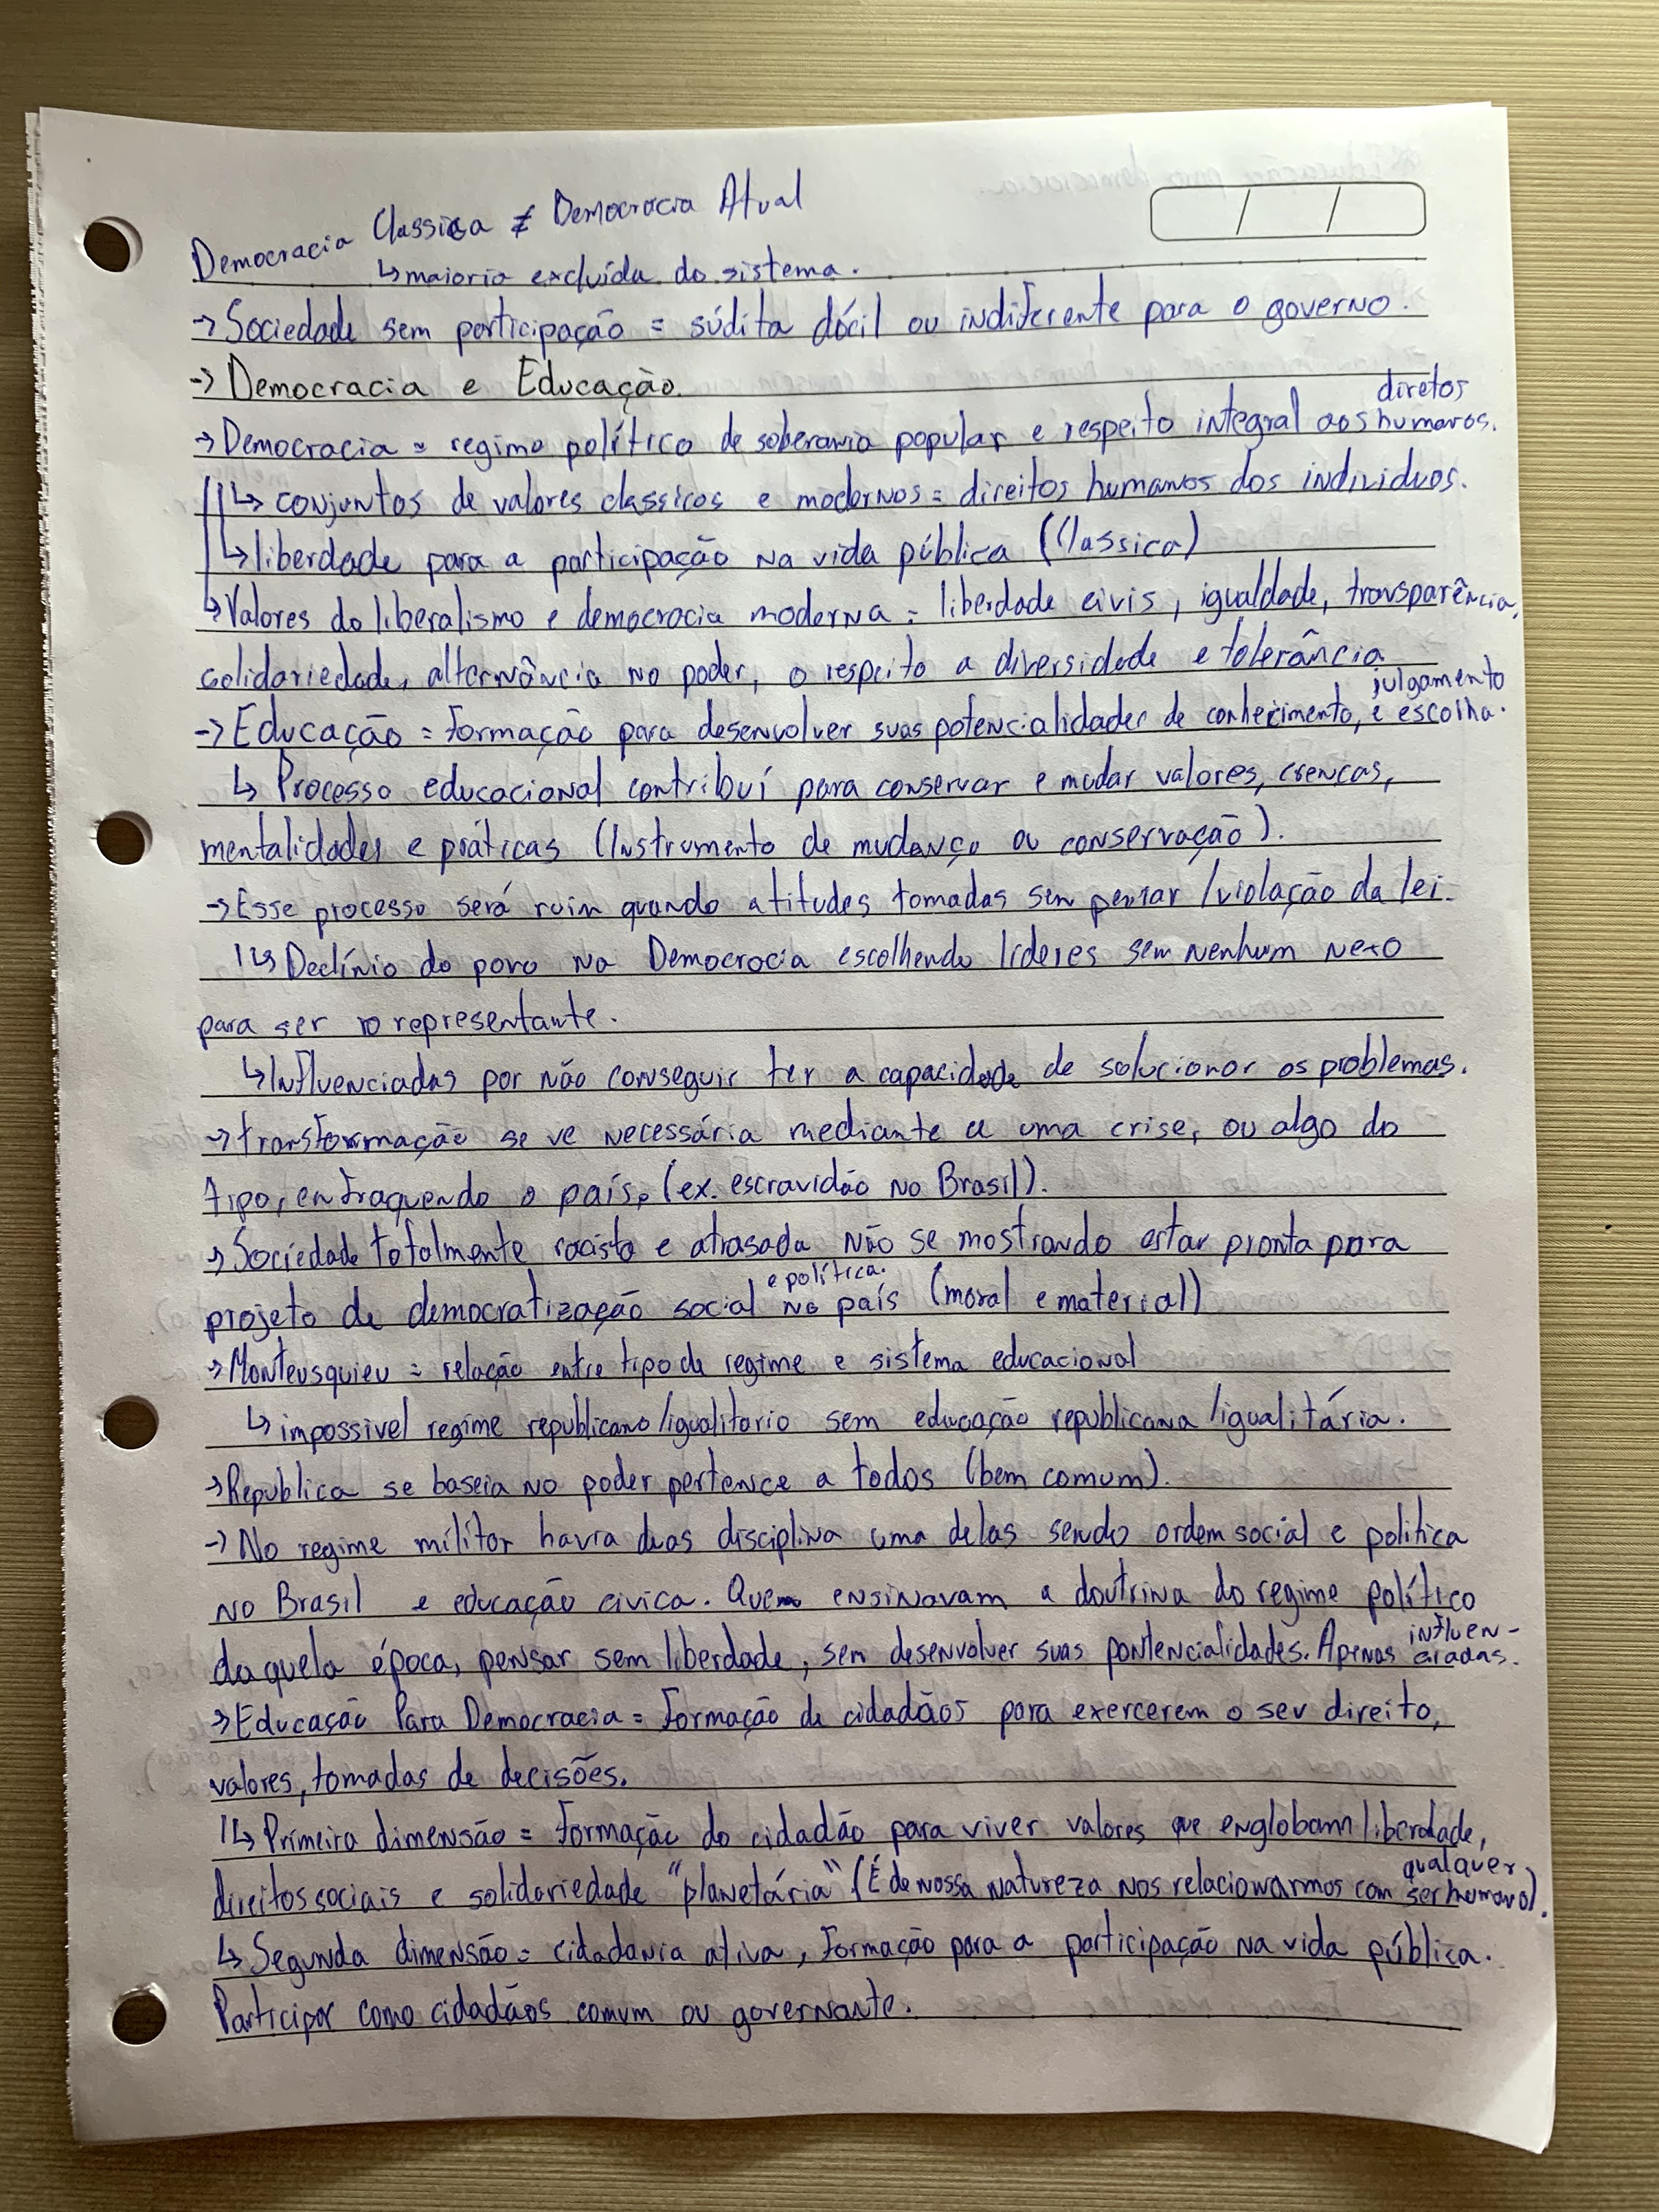 Democracia Classica ≠ Democracia Atual
↳ maioria excluída do sistema.
→ Sociedade sem participação = súdita dócil ou indiferente para o governo.
→ Democracia e Educação.
→ Democracia = regime político de soberania popular e respeito integral aos diretos humanos.
↳ conjuntos de valores classicos e modernos = direitos humanos dos individuos.
↳ liberdade para a participação na vida pública (Classica)
↳ Valores do liberalismo e democracia moderna = liberdade civis, igualdade, transparência,
solidariedade, alternância no poder, o respeito a diversidade e tolerância
→ Educação = formação para desenvolver suas potencialidades de conhecimento, julgamento e escolha.
↳ Processo educacional contribuí para conservar e mudar valores, crenças,
mentalidades e práticas (Instrumento de mudança ou conservação).
→ Esse processo será ruim quando atitudes tomadas sem pensar / violação da lei.
↳ Declínio do povo na Democracia escolhendo líderes sem nenhum nexo
para ser representante.
↳ Influenciadas por não conseguir ter a capacidade de solucionar os problemas.
→ transformação se ve necessária mediante a uma crise, ou algo do
tipo, enfraquendo o país, (ex. escravidão no Brasil).
→ Sociedade totalmente racista e atrasada não se mostrando estar pronta para
projeto de democratização social e política. no país (moral e material)
→ Monteusquieu = relação entre tipo de regime e sistema educacional
↳ impossivel regime republicano/igualitario sem educação republicana/igualitária.
→ Republica se baseia no poder pertence a todos (bem comum).
→ No regime militar havia duas disciplina uma delas sendo ordem social e politica
no Brasil e educação civica. Quem ensinavam a doutrina do regime político
daquela época, pensar sem liberdade, sem desenvolver suas pontencialidades. Apenas influenciadas.
→ Educação Para Democracia = formação de cidadãos para exercerem o seu direito,
valores, tomadas de decisões.
↳ Primeira dimensão = formação do cidadão para viver valores que englobam liberdade,
direitos sociais e solidariedade "planetária" (É de nossa natureza nos relacionarmos com qualquer ser humano).
↳ Segunda dimensão = cidadania ativa, formação para a participação na vida pública.
Participar como cidadãos comum ou governante.